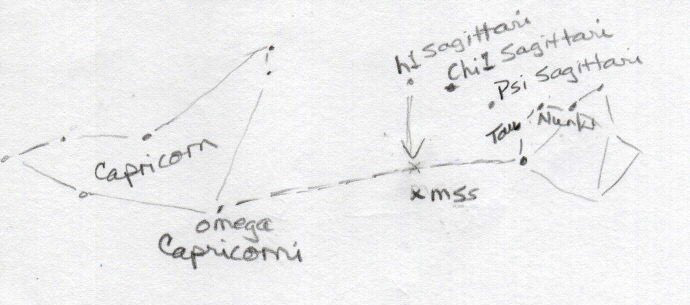 h1 Sagittari
Chi1 Sagittari
Psi Sagittari
Tau Nunki
Capricorn
x mss
omega
Capricorni